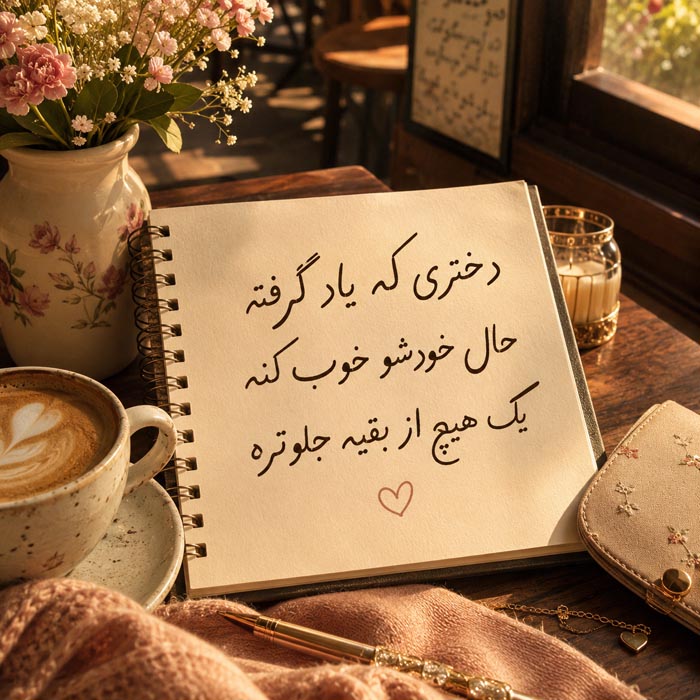 دختری که یاد گرفته
حال خودشو خوب کنه
یک هیچ از بقیه جلوتره